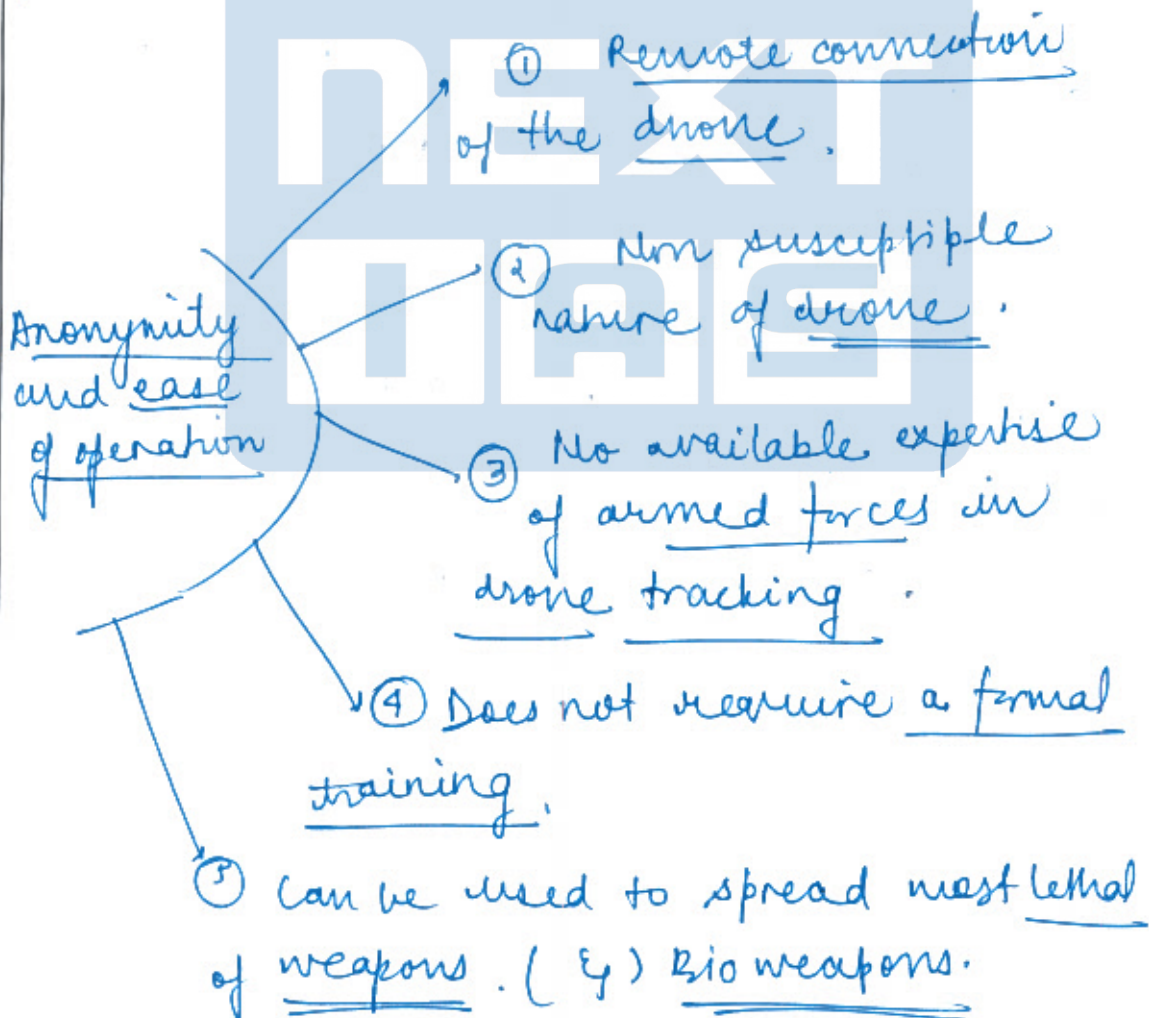 NEXT
IAS
① Remote connection
of the drone.
Anonymity
and ease
of operation
② Non susceptiple
nature of drone.
③ No available expertise
of armed forces in
drone tracking.
④ Does not require a formal
training.
⑤ Can be used to spread most lethal
of weapons. (Eg) Bio weapons.